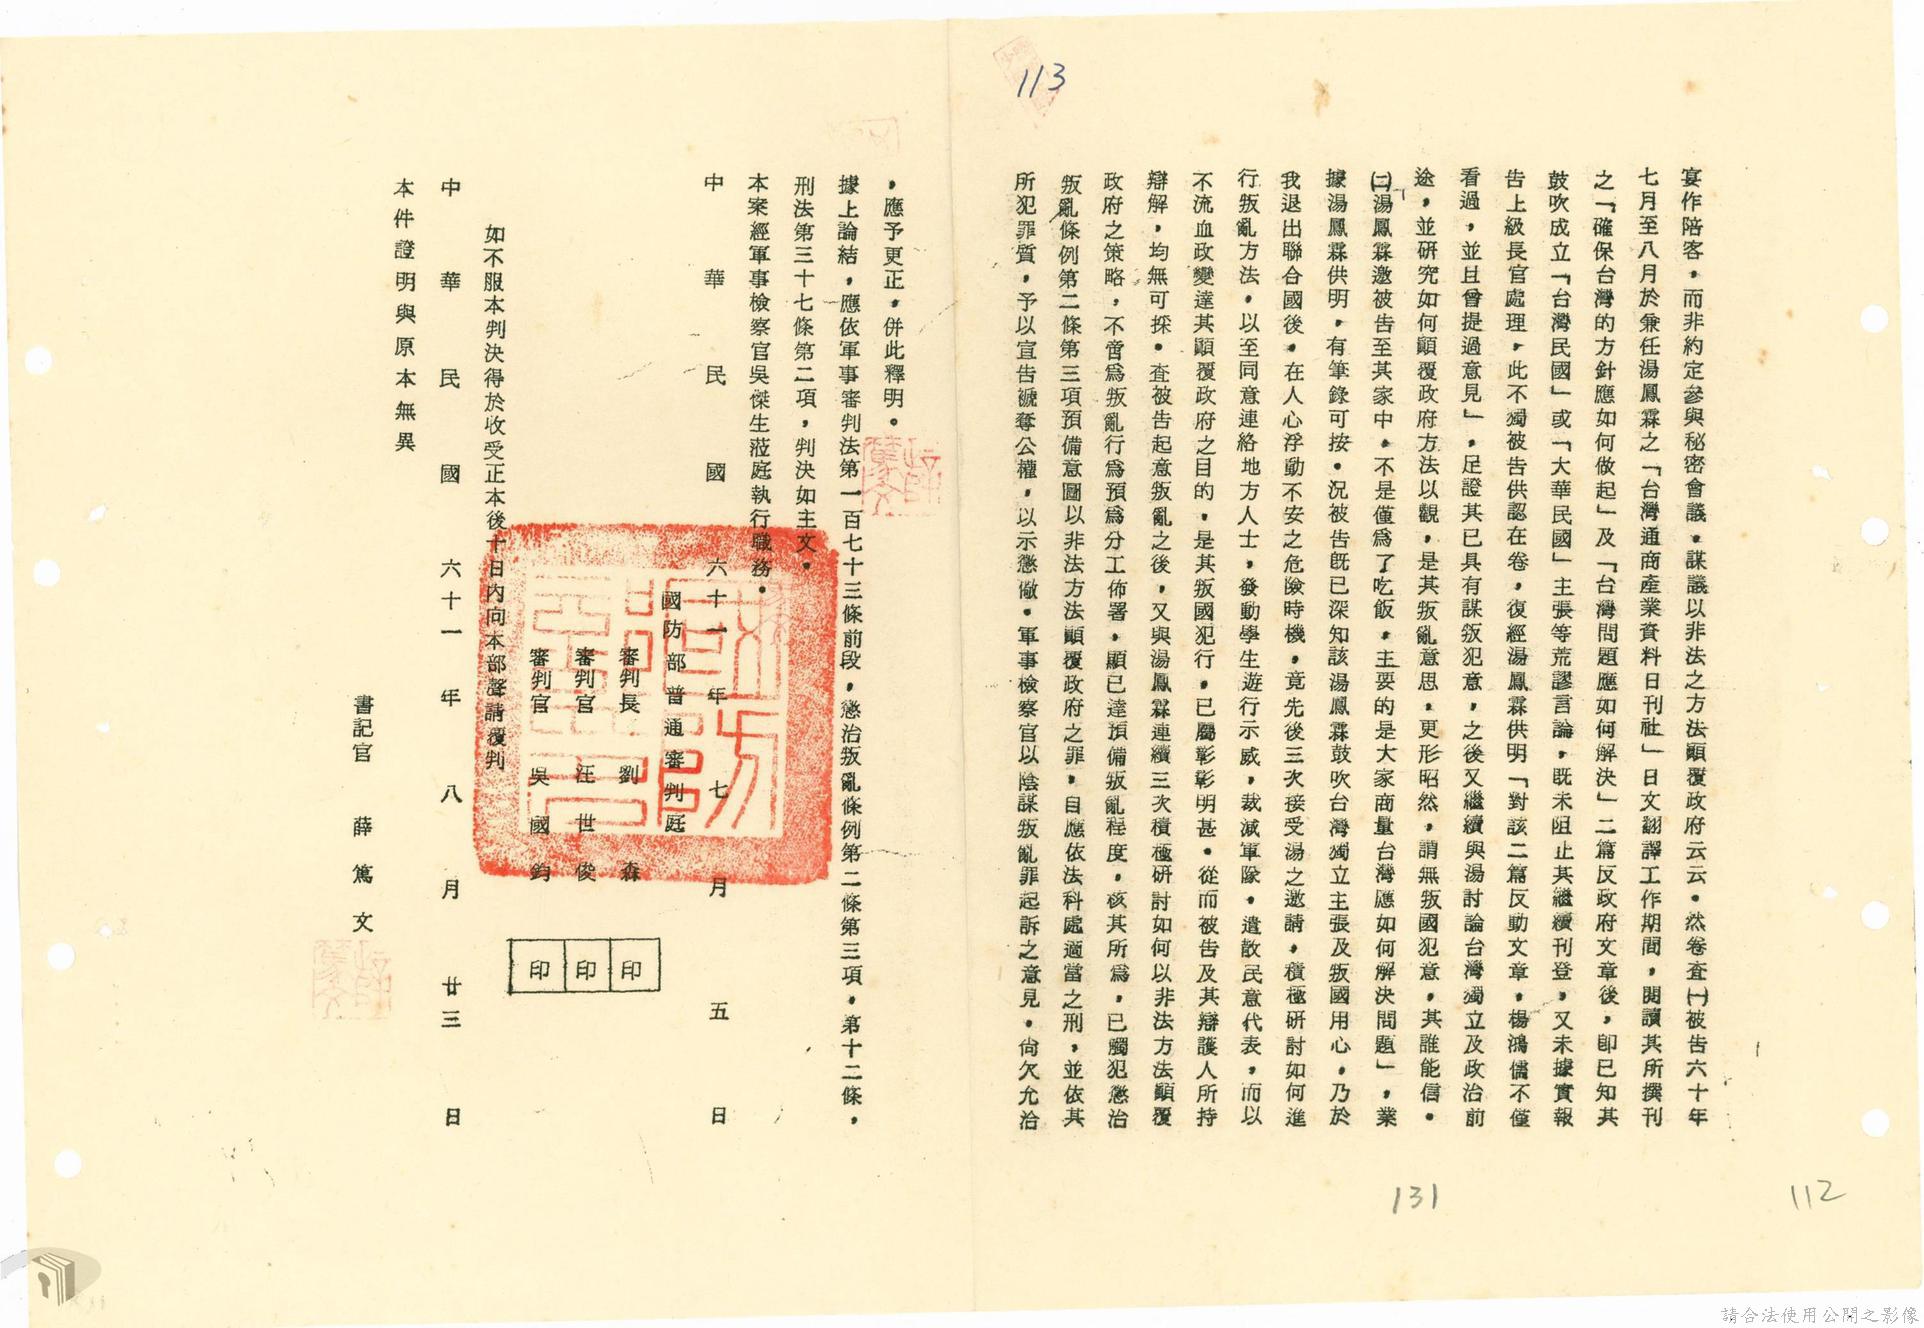 113
宴作陪客，而非約定參與秘密會議。謀議以非法之方法顛覆政府云云。然卷查㈠被告六十年
七月至八月於兼任湯鳳霖之「台灣通商產業資料日刊社」日文翻譯工作期間，閱讀其所撰刊
之「確保台灣的方針應如何做起」及「台灣問題應如何解決」二篇反政府文章後，卽已知其
鼓吹成立「台灣民國」或「大華民國」主張等荒謬言論，既未阻止其繼續刊登，又未據實報
告上級長官處理，此不獨被告供認在卷，復經湯鳳霖供明「對該二篇反動文章，楊鴻儒不僅
看過，並且曾提過意見」，足證其已具有謀叛犯意，之後又繼續與湯討論台灣獨立及政治前
途，並研究如何顛覆政府方法以觀，是其叛亂意思，更形昭然，謂無叛國犯意，其誰能信。
㈡湯鳳霖邀被告至其家中，不是僅爲了吃飯，主要的是大家商量台灣應如何解決問題」，業
據湯鳳霖供明，有筆錄可按。況被告旣已深知該湯鳳霖鼓吹台灣獨立主張及叛國用心，乃於
我退出聯合國後，在人心浮動不安之危險時機，竟先後三次接受湯之邀請，積極研討如何進
行叛亂方法，以至同意連絡地方人士，發動學生遊行示威，裁減軍隊，遣散民意代表，而以
不流血政變達其顛覆政府之目的，是其叛國犯行，已屬彰彰明甚。從而被告及其辯護人所持
辯解，均無可採。查被告起意叛亂之後，又與湯鳳霖連續三次積極研討如何以非法方法顛覆
政府之策略，不啻爲叛亂行爲預爲分工佈署，顯已達預備叛亂程度，核其所爲，已觸犯懲治
叛亂條例第二條第三項預備意圖以非法方法顛覆政府之罪，自應依法科處適當之刑，並依其
所犯罪質，予以宣告褫奪公權，以示懲儆。軍事檢察官以陰謀叛亂罪起訴之意見，尙欠允洽
，應予更正，併此釋明。
據上論結，應依軍事審判法第一百七十三條前段，懲治叛亂條例第二條第三項，第十二條，
刑法第三十七條第二項，判決如主文。
本案經軍事檢察官吳傑生蒞庭執行職務。
中華民國六十一年七月五日
國防部普通審判庭
審判長 劉森 印
審判官 汪世俊 印
審判官 吳國鈞 印
如不服本判決得於收受正本後十日內向本部聲請覆判
中華民國六十一年八月廿三日
本件證明與原本無異
書記官 薛篤文
131
112
請合法使用公開之影像